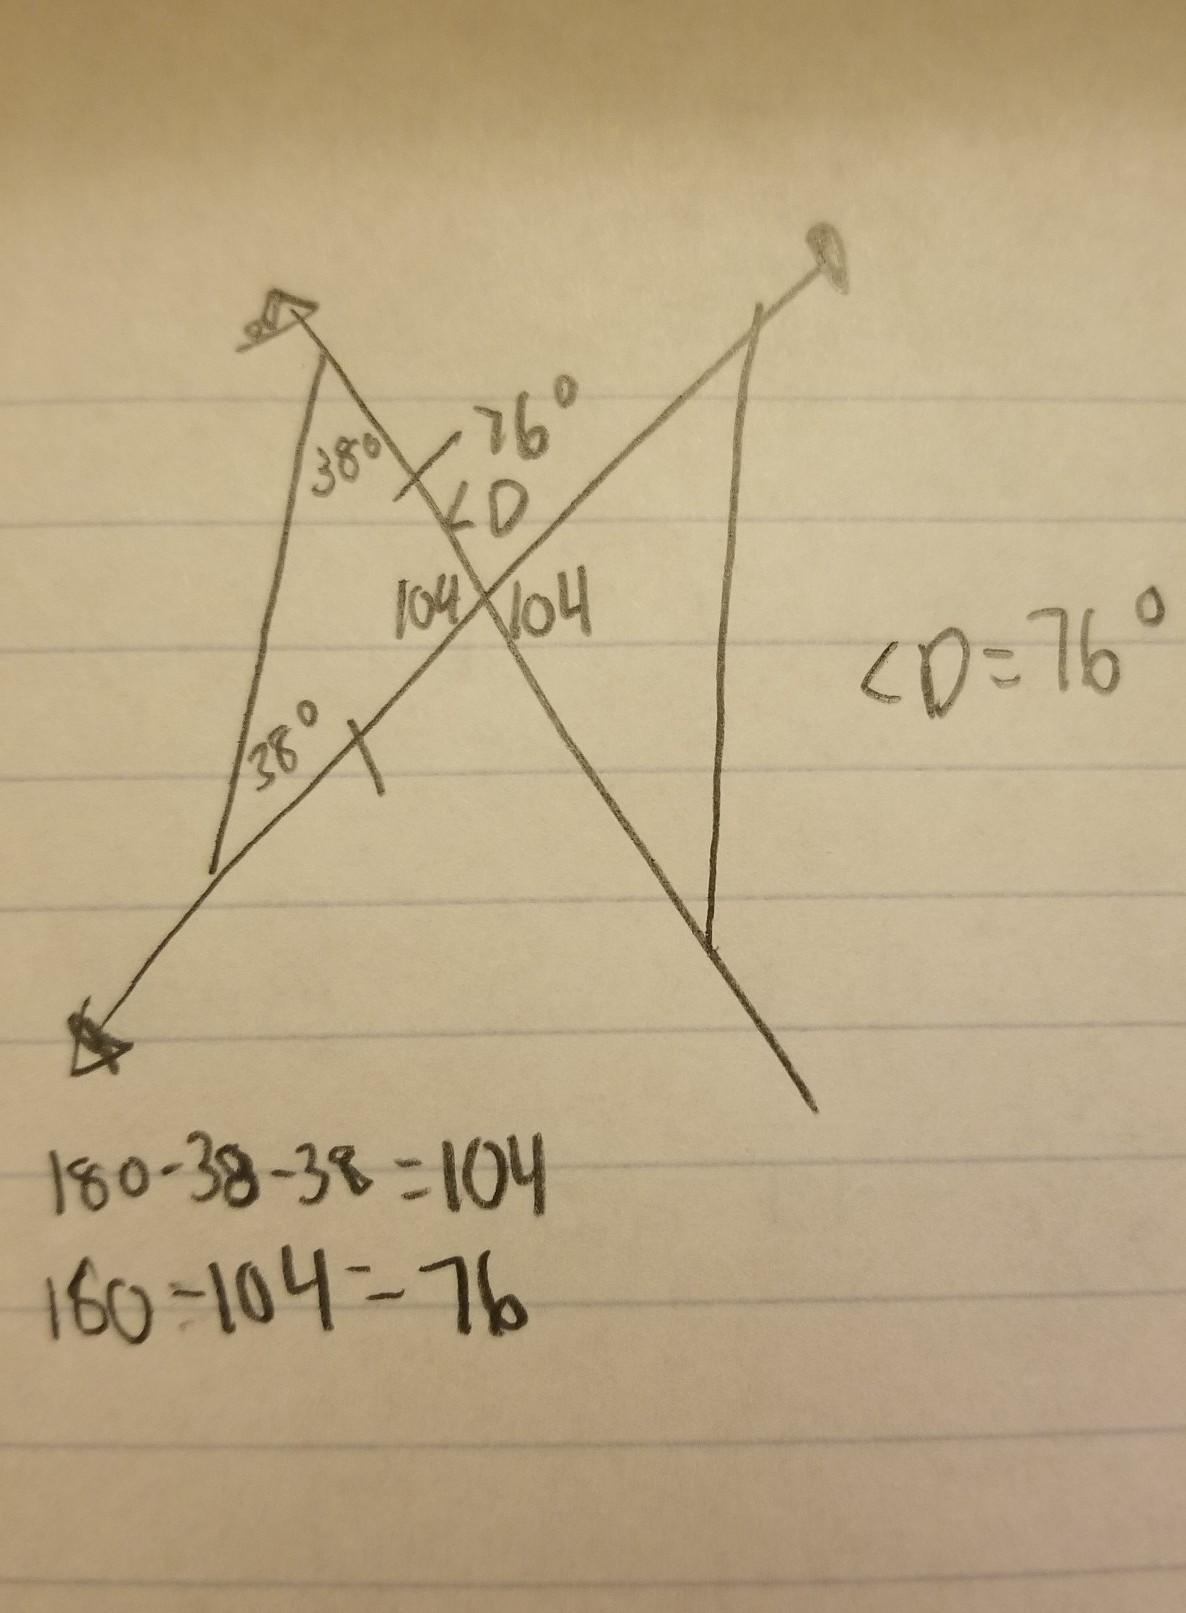 76°
38°
<D
104 104
<D=76°
38°
180-38-38=104
180-104=76